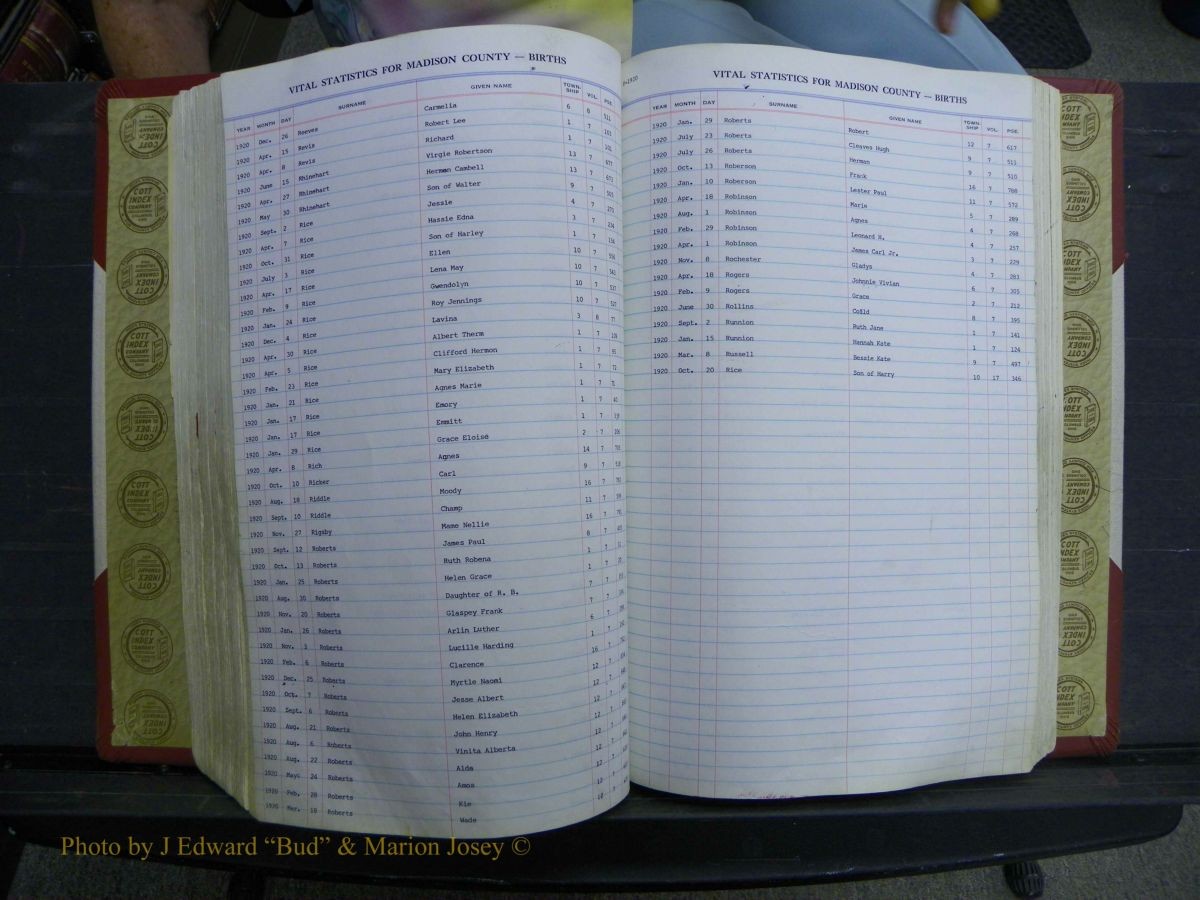 VITAL STATISTICS FOR MADISON COUNTY — BIRTHS
YEAR MONTH DAY SURNAME GIVEN NAME TOWN-SHIP VOL. PGE.
1920 Dec. 26 Reeves Carmelia 6 8 511
1920 Apr. 15 Revis Robert Lee 1 7 103
1920 Apr. 8 Revis Richard 1 7 101
1920 June 15 Rhinehart Virgie Robertson 13 7 677
1920 Apr. 27 Rhinehart Herman Cambell 13 7 673
1920 May 30 Rhinehart Son of Walter 9 7 505
1920 Sept. 2 Rice Jessie 4 7 271
1920 Apr. 7 Rice Hassie Edna 3 7 234
1920 Oct. 31 Rice Son of Harley 1 7 156
1920 July 3 Rice Ellen 10 7 556
1920 Apr. 17 Rice Lena May 10 7 542
1920 Feb. 9 Rice Gwendolyn 10 7 537
1920 Jan. 24 Rice Roy Jennings 10 7 527
1920 Dec. 4 Rice Lavina 3 8 77
1920 Apr. 30 Rice Albert Therm 1 7 109
1920 Apr. 5 Rice Clifford Hermon 1 7 95
1920 Feb. 23 Rice Mary Elizabeth 1 7 72
1920 Jan. 21 Rice Agnes Marie 1 7 71
1920 Jan. 17 Rice Emory 1 7
1920 Jan. 17 Rice Emmitt 1 7
1920 Jan. 29 Rice Grace Eloise 2 7
1920 Apr. 8 Rich Agnes 14 7
1920 Oct. 10 Ricker Carl 9 7
1920 Aug. 18 Riddle Moody 16 7
1920 Sept. 10 Riddle Champ 11 7
1920 Nov. 27 Rigsby Mame Nellie 16 7
1920 Sept. 12 Roberts James Paul 8 7
1920 Oct. 13 Roberts Ruth Robena 1 7
1920 Jan. 25 Roberts Helen Grace 1 7
1920 Aug. 30 Roberts Daughter of R. B. 7 7
1920 Nov. 20 Roberts Glaspey Frank 7 7
1920 Jan. 26 Roberts Arlin Luther 6 7
1920 Nov. 3 Roberts Lucille Harding 1 7
1920 Feb. 6 Roberts Clarence 16 7
1920 Dec. 25 Roberts Myrtle Naomi 12 7
1920 Oct. 7 Roberts Jesse Albert 12 7
1920 Sept. 6 Roberts Helen Elizabeth 12 7
1920 Aug. 21 Roberts John Henry 12 7
1920 Aug. 6 Roberts Vinita Alberta 12 7
1920 Aug. 22 Roberts Alda 12 7
1920 May 24 Roberts Amos 12 7
1920 Feb. 28 Roberts Kie
1920 Mar. 18 Roberts Wade
VITAL STATISTICS FOR MADISON COUNTY — BIRTHS
YEAR MONTH DAY SURNAME GIVEN NAME TOWN-SHIP VOL. PGE.
1920 Jan. 29 Roberts Robert 12 7 617
1920 July 23 Roberts Cleaves Hugh 9 7 511
1920 July 26 Roberts Herman 9 7 510
1920 Oct. 13 Roberson Frank 16 7 780
1920 Jan. 10 Roberson Lester Paul 11 7 572
1920 Apr. 18 Robinson Marie 5 7 289
1920 Aug. 1 Robinson Agnes 4 7 268
1920 Feb. 29 Robinson Leonard H. 4 7 257
1920 Apr. 1 Robinson James Carl Jr. 3 7 229
1920 Nov. 8 Rochester Gladys 4 7 283
1920 Apr. 18 Rogers Johnnie Vivian 6 7 305
1920 Feb. 9 Rogers Grace 2 7 212
1920 June 30 Rollins 8 7 395
1920 Sept. 2 Runnion Ruth Jane 1 7 141
1920 Jan. 15 Runnion Hannah Kate 1 7 124
1920 Mar. 8 Russell Bessie Kate 9 7 497
1920 Oct. 20 Rice Son of Harry 10 17 346
COTT INDEX COMPANY
Photo by J Edward “Bud” & Marion Josey ©